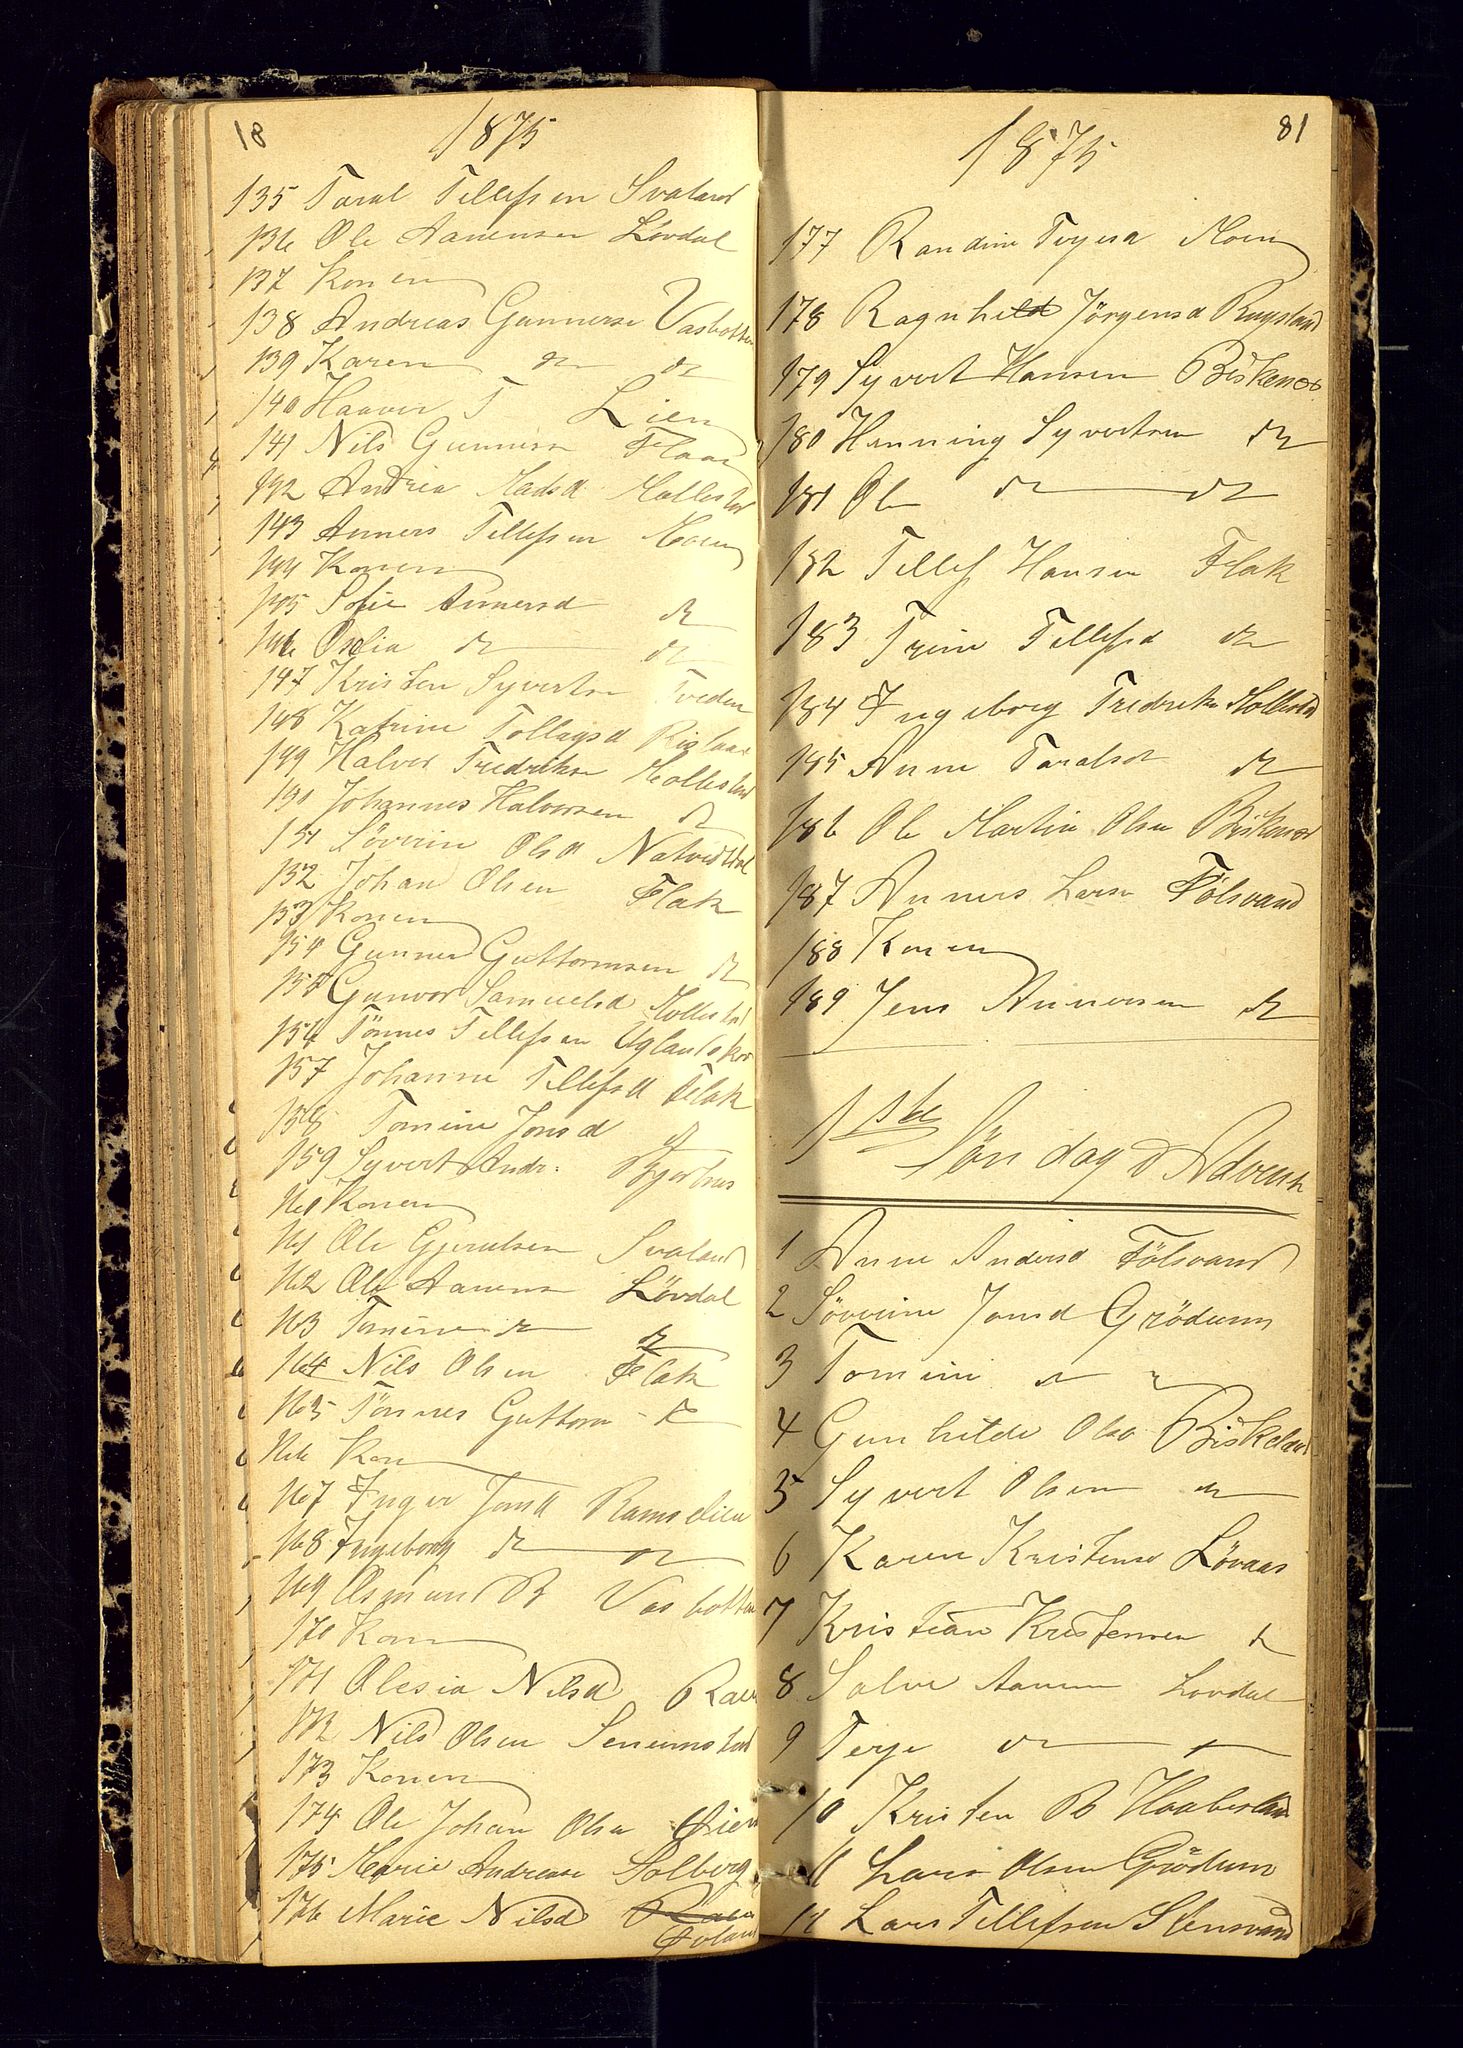 18
1875
135 Taral Tellefsen Svaland
136 Ole Aanensen Lövdal
137 Konen
138 Andreas Gunnerse Vasbotten
139 Karen do do
140 Haaver T Lien
141 Nils Gunnersn Flaa
142 Andrea Madsd Mollestad
143 Anners Tellefsen Moen
144 Konen
145 Sofie Annersd do
146 Oselia do do
147 Kristen Syvertsn Tveden
148 Katrine Tollagsd Rislaa
149 Halvor Fredriksn Mollestad
150 Johannes Halvorsen do
151 Söverine Olsd Natvedtdal
152 Johan Olsen Flak
153 Konen
154 Gunner Guttormsen do
155 Gunvor Samuelsd Mollestad
156 Tönnes Tellefsen Uglandskov
157 Johanne Tellefsd Flak
158 Tomine Jonsd do
159 Syvert Andr: Bjorhus
160 Konen
161 Ole Gjerulsen Svaland
162 Ole Aanens Lövdal
163 Tomine do do
164 Nils Olsen Flak
165 Tönnes Guttorm - do
166 Kon
167 Inger Jonsd Ramselien
168 Ingeborg do do
169 Osmund B Vasbotten
170 Kon
171 Olesia Nilsd Raen
172 Nils Olsen Senumstad
173 Konen
174 Ole Johan Olsn Oien
175 Marie Andrease Solberg
176 Marie Nilsd Raen

81
1875
177 Randine Terjesd Moen
178 Ragnhild Jörgensd Rugsland
179 Syvert Hansen Birkenes
180 Henning Syvertsen do
181 Ole do do
182 Tellef Hansen Flak
183 Trine Tellefsd do
184 Ingeborg Fredriksn Mollestad
185 Anne Taralsd do
186 Ole Martin Olsn Birkenes
187 Anners Larsn Fölsvand
188 Konen
189 Jens Annersen do
1ste Söndag i Advent
1 Anne Andersd Fölsvand
2 Söverine Jonsd Grödum
3 Tomine do do
4 Gunhilde Olsd Birkeland
5 Syvert Olsen do
6 Karen Kristense Lövaas
7 Kristian Kristensen do
8 Salve Aanens Lovdal
9 Terje do do
10 Kristen B Haabesland
11 Lars Olsen Grödum
12 Lars Tellefsen Stensvand